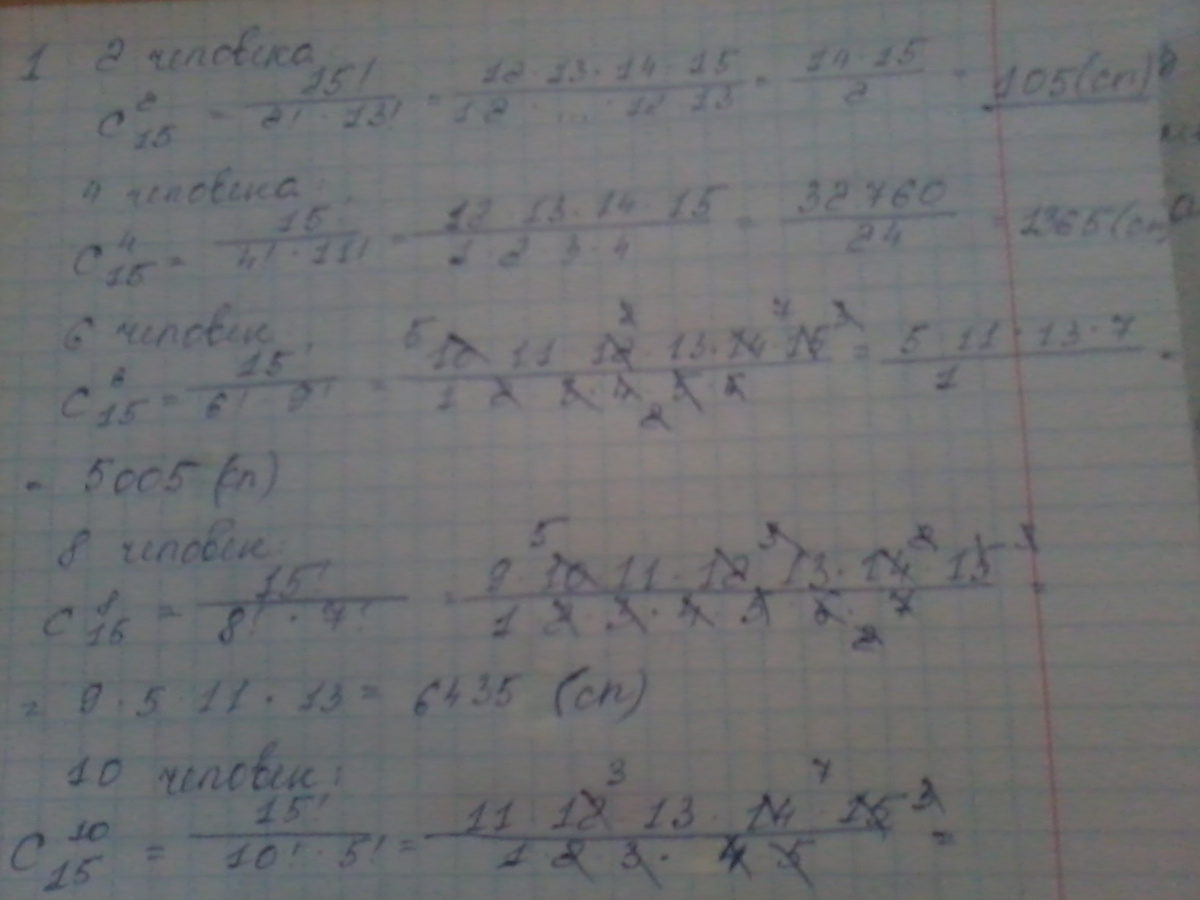 1 2 человека
C₁₅² = 15! / 2! · 13! = 12 · 13 · 14 · 15 / 1 2 ... 12 13 = 14 · 15 / 2 = 105 (сп)
4 человека:
C₁₅⁴ = 15 / 4! · 11! = 12 · 13 · 14 · 15 / 1 · 2 · 3 · 4 = 32760 / 24 = 1365 (сп)
6 человек:
C₁₅⁶ = 15! / 6! · 9! = 10 · 11 · 12 · 13 · 14 · 15 / 1 · 2 · 3 · 4 · 5 · 6 = 5 · 11 · 13 · 7 / 1 =
= 5005 (сп)
8 человек:
C₁₅⁸ = 15! / 8! · 7! = 9 · 10 · 11 · 12 · 13 · 14 · 15 / 1 · 2 · 3 · 4 · 5 · 6 · 7 =
= 9 · 5 · 11 · 13 = 6435 (сп)
10 человек:
C₁₅¹⁰ = 15! / 10! · 5! = 11 · 12 · 13 · 14 · 15 / 1 · 2 · 3 · 4 · 5 =